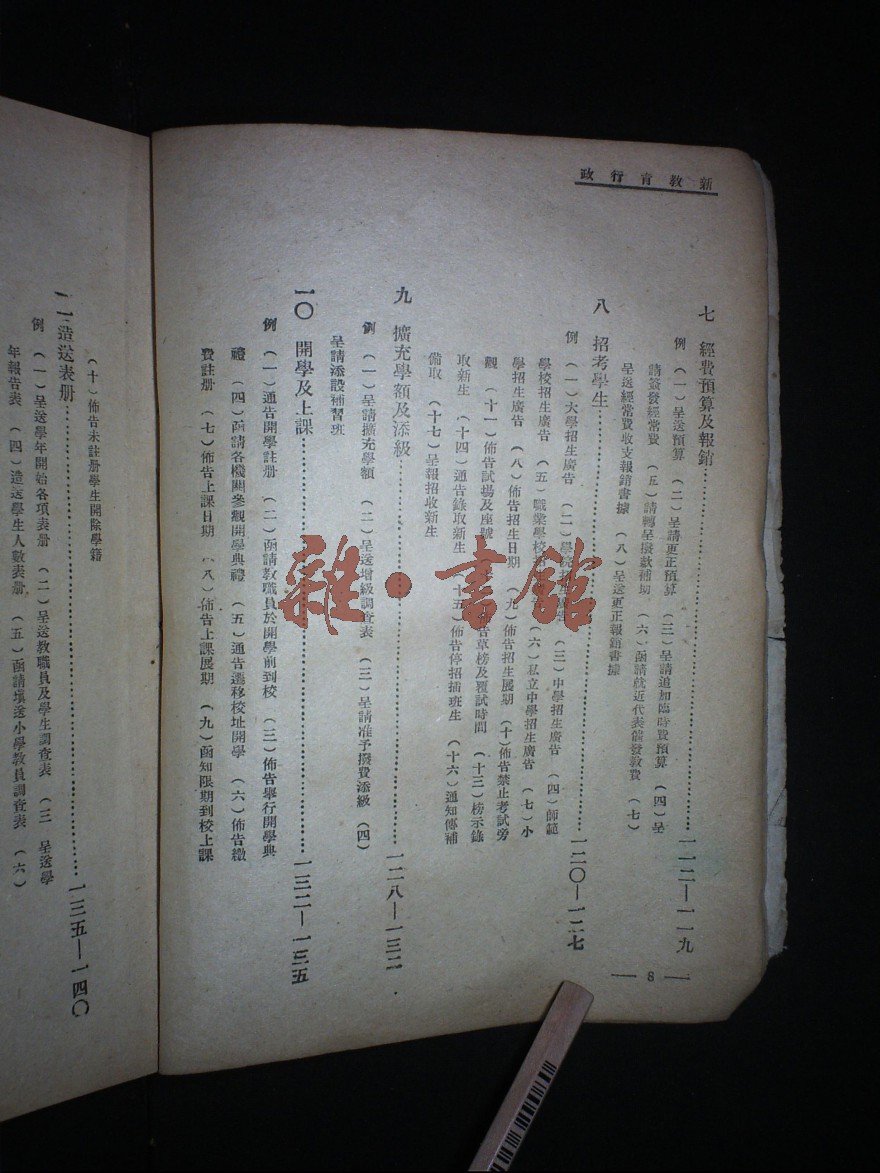 新教育行政
七 經費預算及報銷……一一二—一一九
例 (一)呈送預算 (二)呈請更正預算 (三)呈請追加臨時費預算 (四)呈
請簽發經常費 (五)請轉呈撥款補助 (六)函請就近代表催發教費 (七)
呈送經常費收支報銷書據 (八)呈送更正報銷書據
八 招考學生……一二〇—一二七
例 (一)大學招生廣告 (二)學院招生廣告 (三)中學招生廣告 (四)師範
學校招生廣告 (五)職業學校招生廣告 (六)私立中學招生廣告 (七)小
學招生廣告 (八)佈告招生日期 (九)佈告招生展期 (十)佈告禁止考試旁
觀 (十一)佈告試場及座號 告草榜及覆試時間 (十三)榜示錄
取新生 (十四)通告錄取新生 (十五)佈告停招插班生 (十六)通知傳補
備取 (十七)呈報招收新生
九 擴充學額及添級……一二八—一三二
例 (一)呈請擴充學額 (二)呈送增級調查表 (三)呈請准予撥費添級 (四)
呈請添設補習班
一〇 開學及上課……一三二—一三五
例 (一)通告開學註册 (二)函請教職員於開學前到校 (三)佈告舉行開學典
禮 (四)函請各機關參觀開學典禮 (五)通告遷移校址開學 (六)佈告繳
費註册 (七)佈告上課日期 (八)佈告上課展期 (九)函知限期到校上課
— 8 —
(十)佈告未註册學生開除學籍
一一 造送表册……一三五—一四〇
例 (一)呈送學年開始各項表册 (二)呈送教職員及學生調查表 (三 呈送學
年報告表 (四)造送學生人數表册 (五)函請填送小學教員調查表 (六)
雜·書館